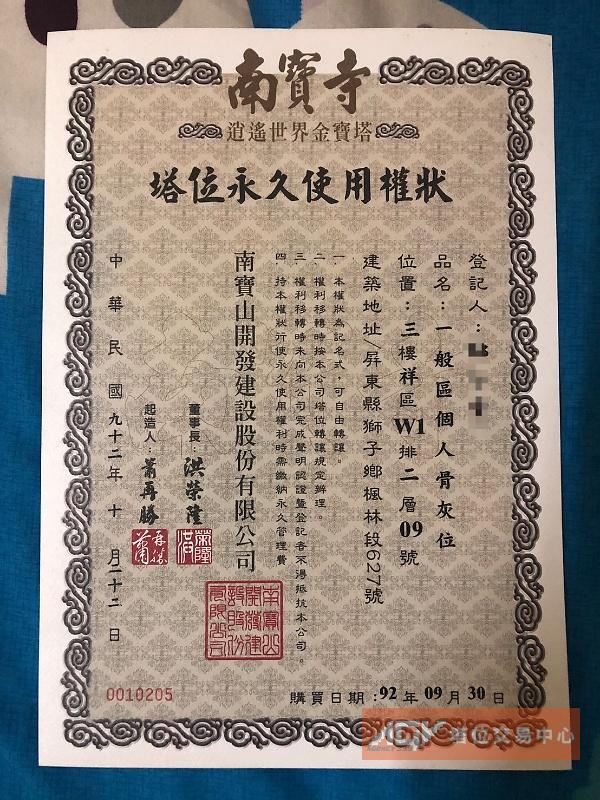 南寶寺
逍遙世界金寶塔
塔位永久使用權狀
登記人：
品名：一般區個人骨灰位
位置：三樓祥區W1排二層09號
建築地址/屏東縣獅子鄉楓林段627號
一、本權狀為記名式，可自由轉讓。
二、權利移轉時按本公司塔位轉讓規定辦理。
三、權利移轉時未向本公司完成聲明認證暨登記者不得抵抗本公司。
四、持本權狀行使永久使用權利時需繳納永久管理費
南寶山開發建設股份有限公司
董事長：洪榮隆
起造人：蕭再勝
中華民國九十二年十月二十二日
南寶山開發建設股份有限公司
0010205
購買日期：92年09月30日
塔位交易中心